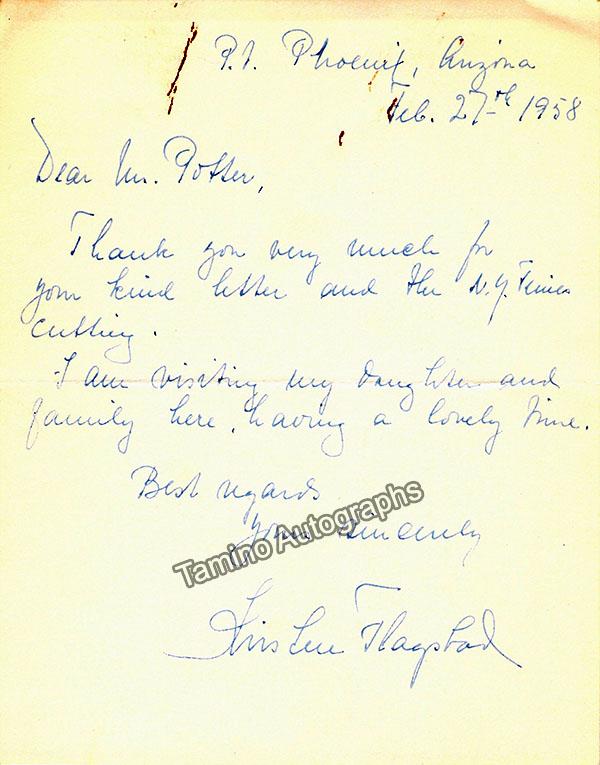 P.t. Phoenix, Arizona
Feb. 27th 1958
Dear Mr. Potter,
Thank you very much for
your kind letter and the N.Y. Times
cutting.
I am visiting my daughter and
family here, having a lovely time.
Best regards
Yours sincerely
Tamino Autographs
Kirsten Flagstad